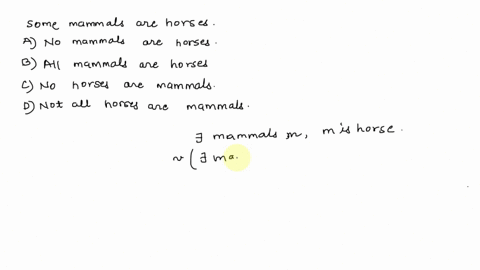 Some mammals are horses.
A) No mammals are horses.
B) All mammals are horses
C) No horses are mammals.
D) Not all horses are mammals.
∃ mammals m, m is horse.
~ (∃ ma